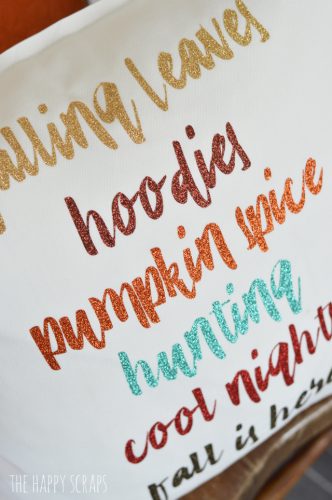 falling leaves
hoodies
pumpkin spice
hunting
cool nights
Fall is here
THE HAPPY SCRAPS